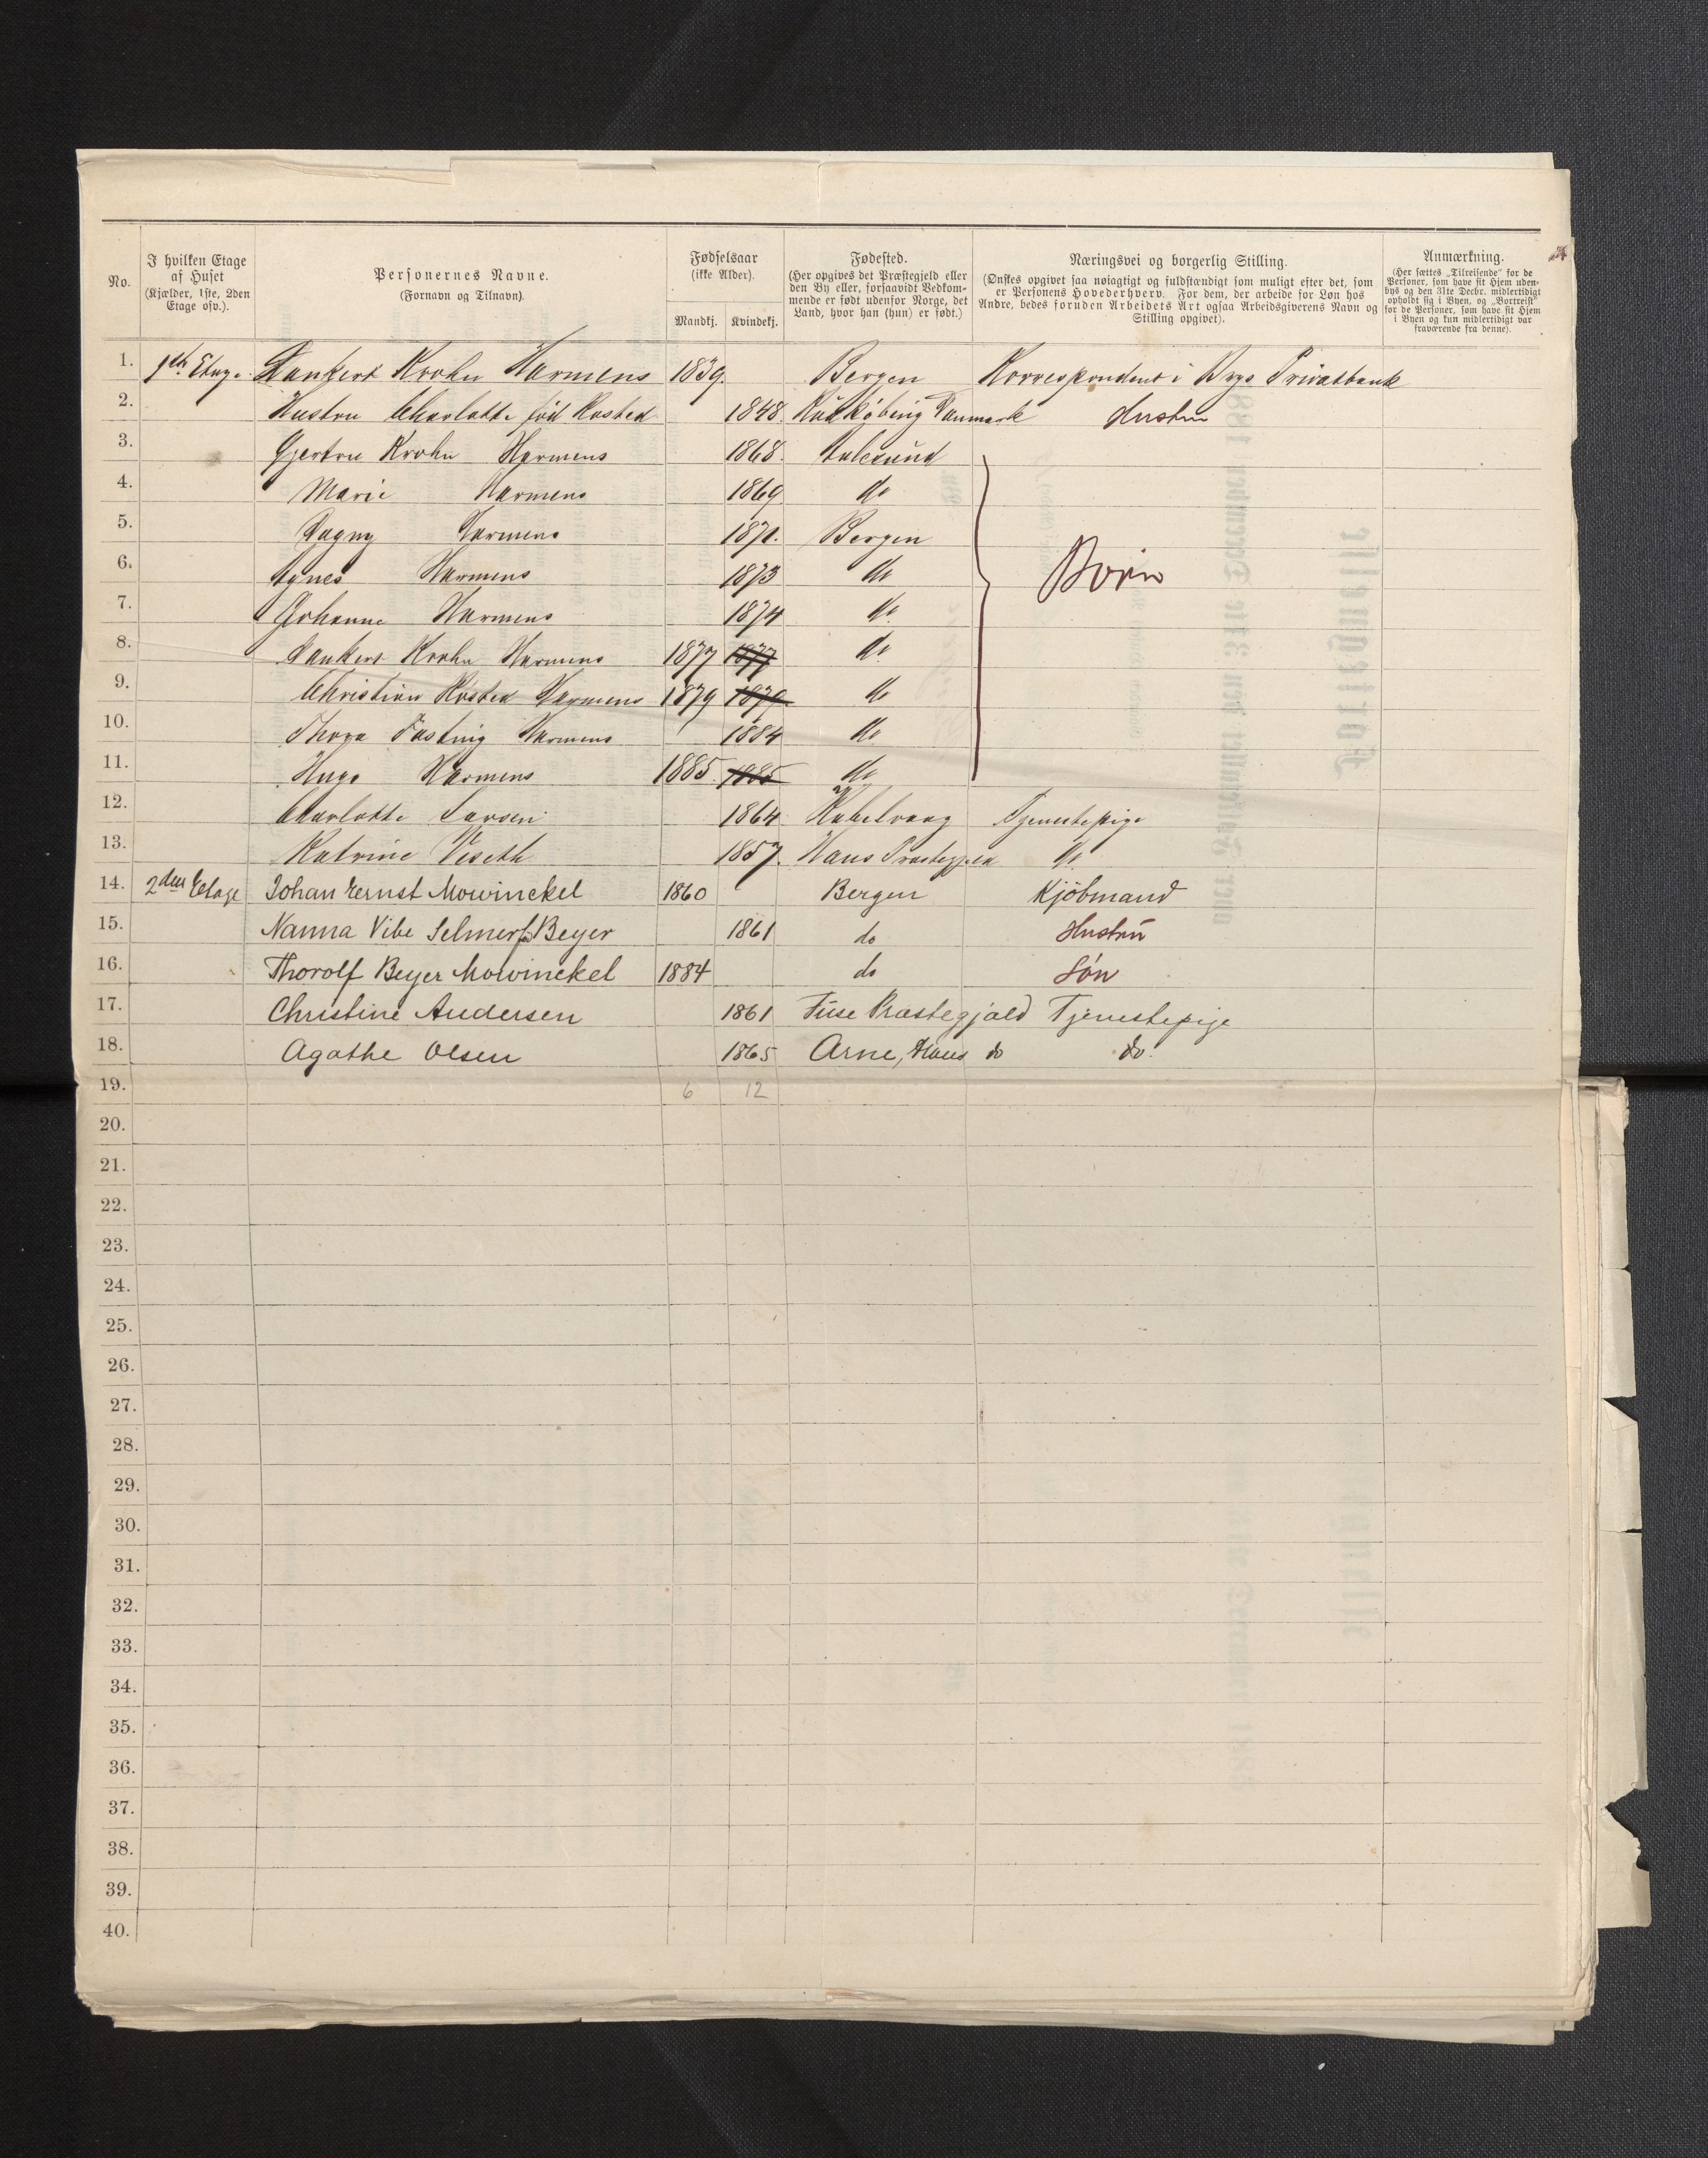 No.
I hvilken Etage
af Huset
(Kjælder, 1ste, 2den
Etage osv.).
Personernes Navne.
(Fornavn og Tilnavn).
Fødselsaar
(ikke Alder).
Mandkj. Kvindekj.
Fødested.
(Her opgives det Præstegjeld eller
den By eller, forsaavidt Vedkom-
mende er født udenfor Norge, det
Land, hvor han (hun) er født.)
Næringsvei og borgerlig Stilling.
(Ønskes opgivet saa nøiagtigt og fuldstændigt som muligt efter det, som
er Personens Hovederhverv. For dem, der arbeide for Løn hos
Andre, bedes foruden Arbeidets Art ogsaa Arbeidsgiverens Navn og
Stilling opgivet).
Anmærkning.
(Her sættes „Tilreisende" for de
Personer, som have sit Hjem uden-
bys og den 31te Decbr. midlertidigt
opholdt sig i Byen, og „Bortreist"
for de Personer, som have sit Hjem
i Byen og kun midlertidigt var
fraværende fra denne).
1. 1ste Etage Dankert Krohn Harmens 1839. Bergen Korrespondent i Brgs Privatbank
2. Hustru Charlotte fød Rosted 1848. Danmark Hustru
3. Gjertru Krohn Harmens 1868. Aalesund
4. Marie Harmens 1869 do
5. Dagny Harmens 1871. Bergen
6. Agnes Harmens 1873 do Børn
7. Johanne Harmens 1874 do
8. Dankert Krohn Harmens 1877 1877 do
9. Christian Rosted Harmens 1879 1879 do
10. Thora Fasting Harmens 1884 do
11. Hugo Harmens 1885. 1885 do
12. Charlotte Larsen 1864 Kabelvaag Tjenestepige
13. Katrine Veseth 1857. Haus Præstegjeld do
14. 2den Etage Johan Ernst Mowinckel 1860 Bergen Kjöbmand
15. Nanna Vibe Selmer f. Beyer 1861 do Hustrü
16. Thorolf Beyer Mowinckel 1884 do Sön
17. Christine Andersen 1861 Füse Præstegjald Tjenestepige
18. Agathe Olsen 1865 Arne, Haus do do.
19. 6 12
20.
21.
22.
23.
24.
25.
26.
27.
28.
29.
30.
31.
32.
33.
34.
35.
36.
37.
38.
39.
40.